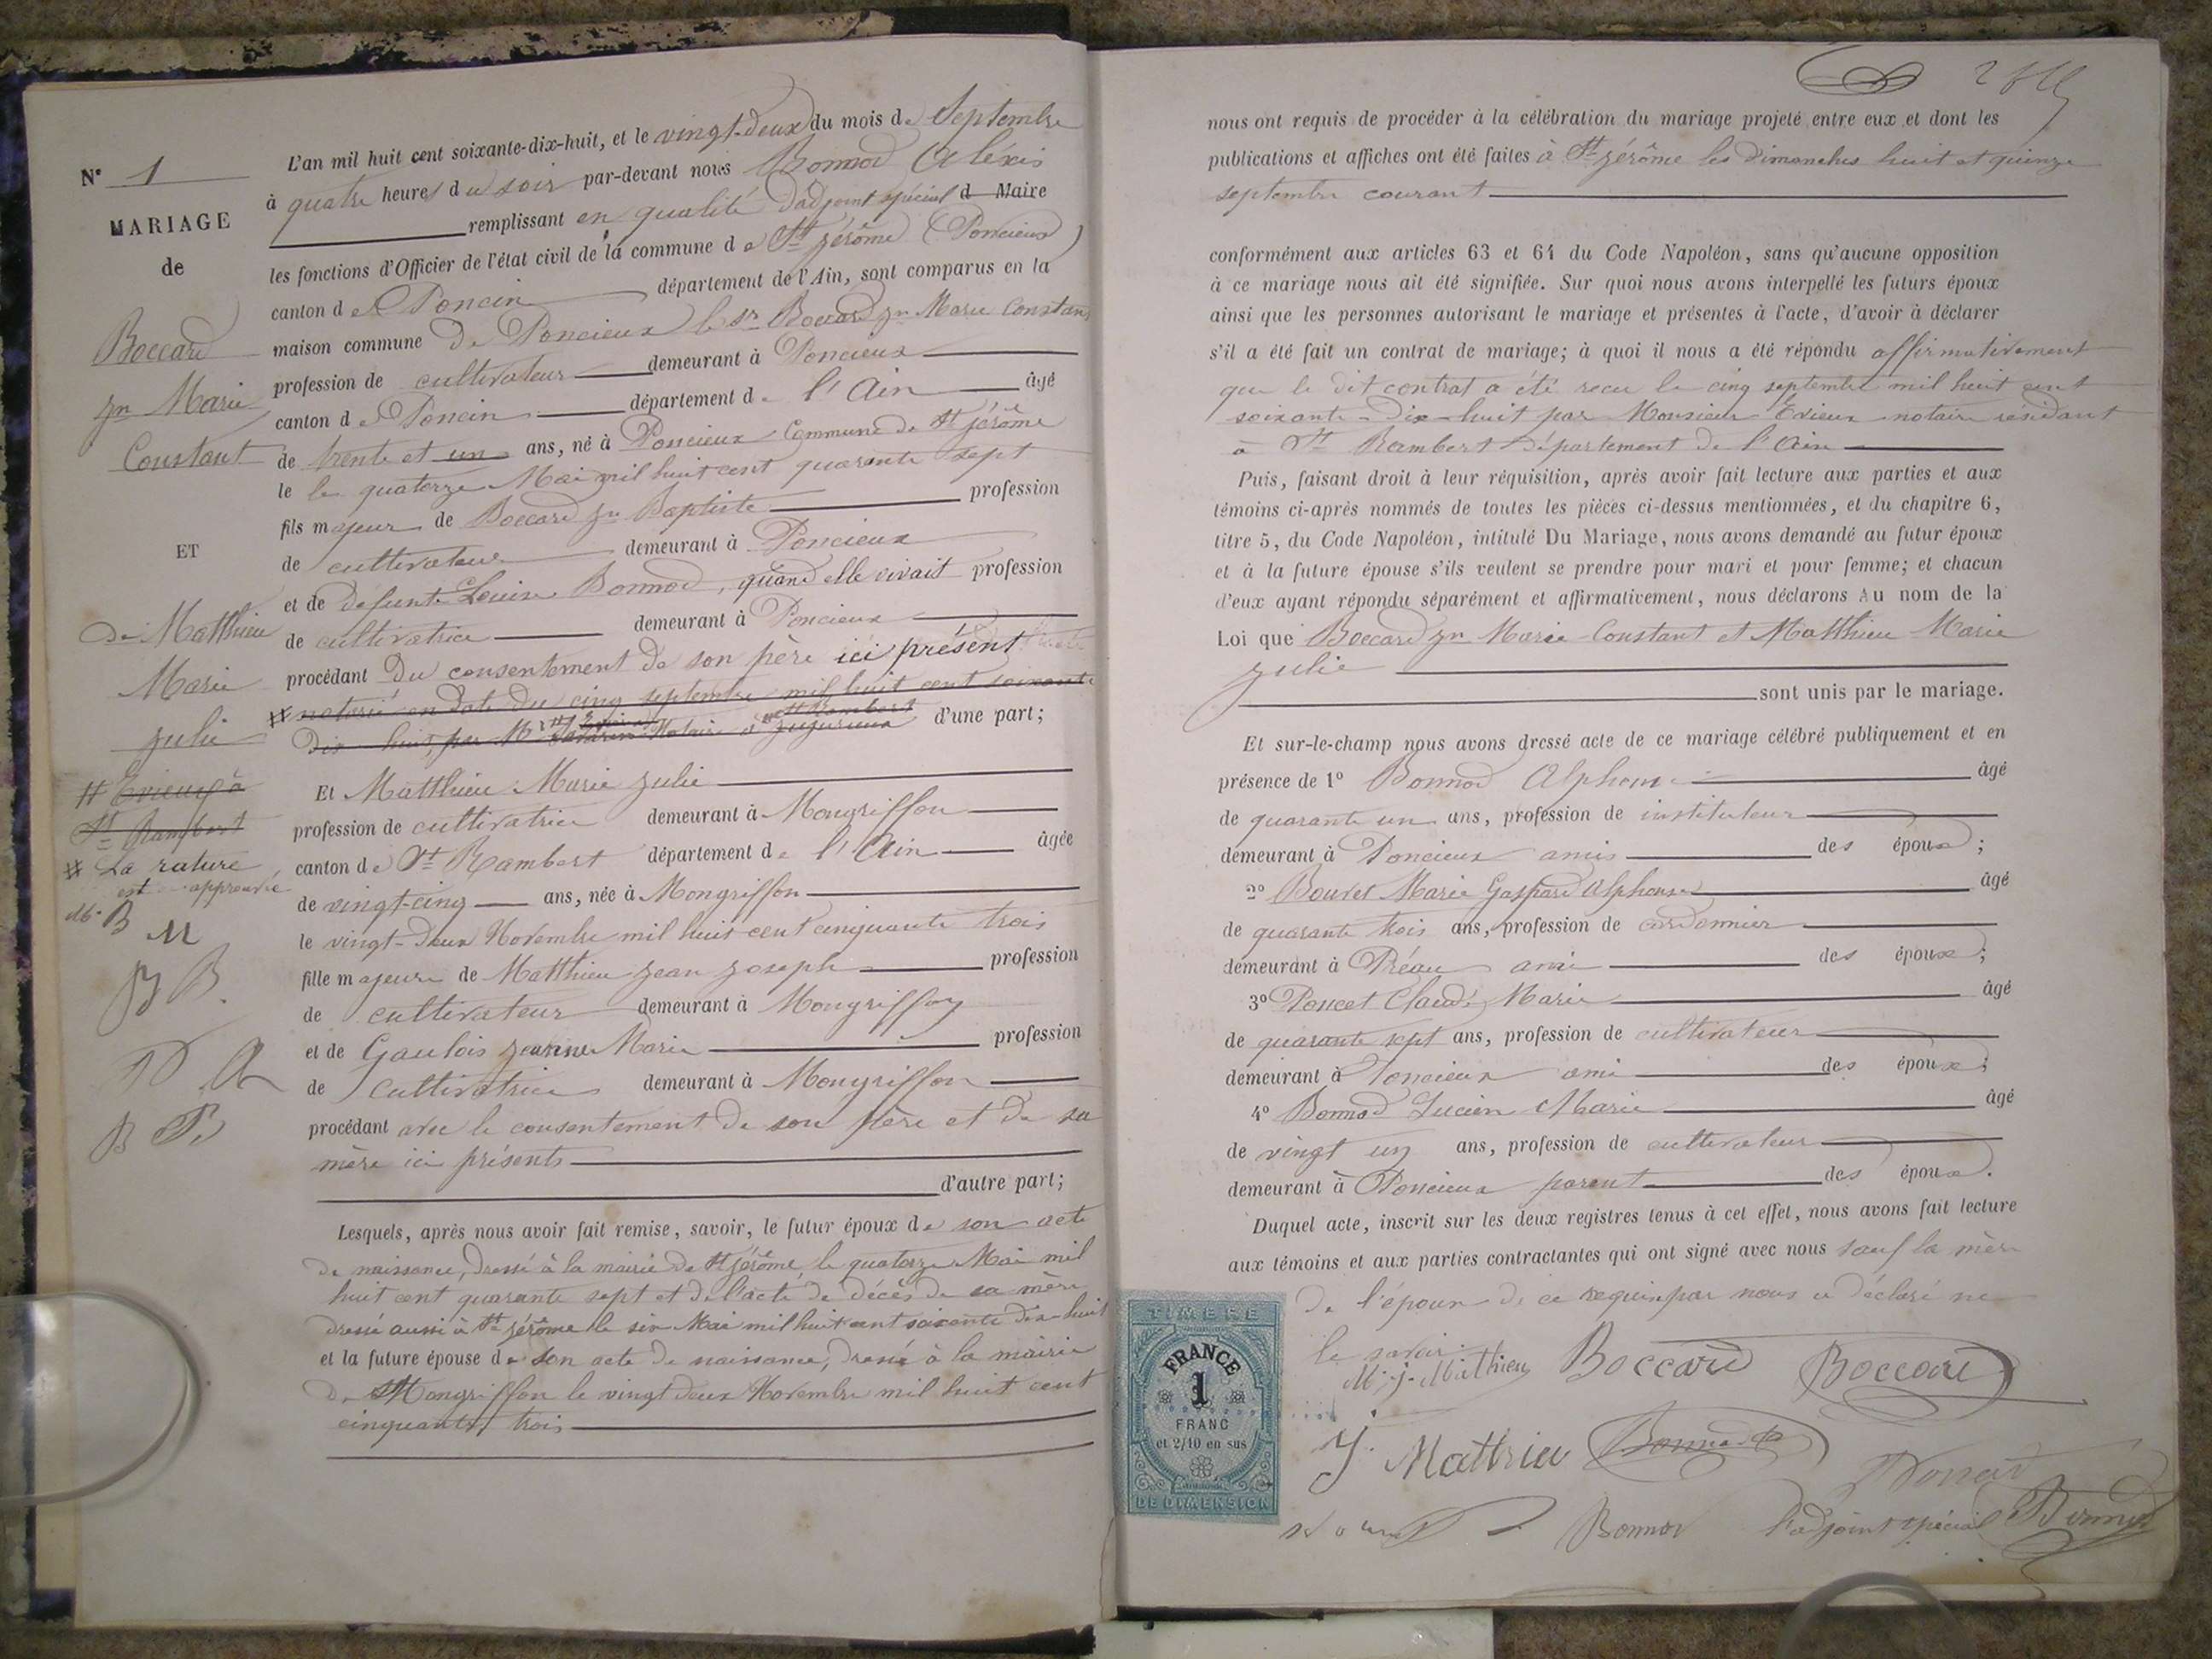 N° 1
MARIAGE
de
Boccard
Jn Marie
Constant
ET
De Matthieu
Marie
Julie
# Evieux à
St Rambert
# La rature
est approuvée
B
M
J B
B P
L'an mil huit cent soixante-dix-huit, et le vingt-deux du mois de Septembre
à quatre heures du soir par-devant nous Bonnod Alexis
remplissant en qualité d'adjoint spécial d Maire
les fonctions d'Officier de l'état civil de la commune de St Jérôme (Poncieux)
canton de Poncin département de l'Ain, sont comparus en la
maison commune De Poncieux le sr Boccard Jn Marie Constant
profession de cultivateur demeurant à Poncieux
canton de Poncin département de l'Ain âgé
de trente et un ans, né à Poncieux Commune de St Jérôme
le le quatorze Mai mil huit cent quarante sept
fils majeur de Boccard Jn Baptiste profession
de cultivateur demeurant à Poncieux
et de defunte Louise Bonnod, quand elle vivait profession
de cultivatrice demeurant à Poncieux
procédant Du consentement de son père ici présent
# notarié en date du cinq septembre mil huit cent soixante
Dix-huit, par Mr Notaire à St Rambert Jujurieux d'une part;
Et Matthieu Marie Julie
profession de cultivatrice demeurant à Mongriffon
canton de St Rambert département de l'Ain âgée
de vingt-cinq ans, née à Mongriffon
le vingt-deux Novembre mil huit cent cinquante trois
fille majeure de Matthieu Jean Joseph profession
de cultivateur demeurant à Mongriffon
et de Gaulois Jeanne Marie profession
de cultivatrice demeurant à Mongriffon
procédant avec le consentement de son père et de sa
mère ici présents
d'autre part;
Lesquels, après nous avoir fait remise, savoir, le futur époux de son acte
de naissance, dressé à la mairie de St Jérôme le quatorze Mai mil
huit cent quarante sept et de l'acte de décès de sa mère
dressé aussi à St Jérôme le six Mai mil huit cent soixante dix-huit
et la future épouse de son acte de naissance, dressé à la mairie
de Mongriffon le vingt deux Novembre mil huit cent
cinquante trois
nous ont requis de procéder à la célébration du mariage projeté entre eux et dont les
publications et affiches ont été faites à St Jérôme les dimanches huit et quinze
septembre courant
conformément aux articles 63 et 64 du Code Napoléon, sans qu'aucune opposition
à ce mariage nous ait été signifiée. Sur quoi nous avons interpellé les futurs époux
ainsi que les personnes autorisant le mariage et présentes à l'acte, d'avoir à déclarer
s'il a été fait un contrat de mariage; à quoi il nous a été répondu affirmativement
que le dit contrat a été reçu le cinq septembre mil huit cent
soixante-Dix-huit par Monsieur Evieux notaire résidant
à St Rambert Département de l'Ain
Puis, faisant droit à leur réquisition, après avoir fait lecture aux parties et aux
témoins ci-après nommés de toutes les pièces ci-dessus mentionnées, et du chapitre 6,
titre 5, du Code Napoléon, intitulé Du Mariage, nous avons demandé au futur époux
et à la future épouse s'ils veulent se prendre pour mari et pour femme; et chacun
d'eux ayant répondu séparément et affirmativement, nous déclarons Au nom de la
Loi que Boccard Jn Marie Constant et Matthieu Marie
Julie
sont unis par le mariage.
Et sur-le-champ nous avons dressé acte de ce mariage célébré publiquement et en
présence de 1° Bonnod Alphonse âgé
de quarante un ans, profession de instituteur
demeurant à Poncieux amis des époux;
2° Bouvet Marie Gaspard Alphonse âgé
de quarante trois ans, profession de cordonnier
demeurant à Préau ami des époux;
3° Poncet Claude Marie âgé
de quarante sept ans, profession de cultivateur
demeurant à Poncieux ami des époux;
4° Bonnod Lucien Marie âgé
de vingt un ans, profession de cultivateur
demeurant à Poncieux parent des époux.
Duquel acte, inscrit sur les deux registres tenus à cet effet, nous avons fait lecture
aux témoins et aux parties contractantes qui ont signé avec nous sauf la mère
De l'époux de ce requis par nous a déclaré ne
le savoir.
M. J. Matthieu Boccard Boccard
J. Matthieu Bonnod
Bonnod l'adjoint spécial Bonnod
TIMBRE
FRANCE
1
FRANC
et 2/10 en sus
DE DIMENSION